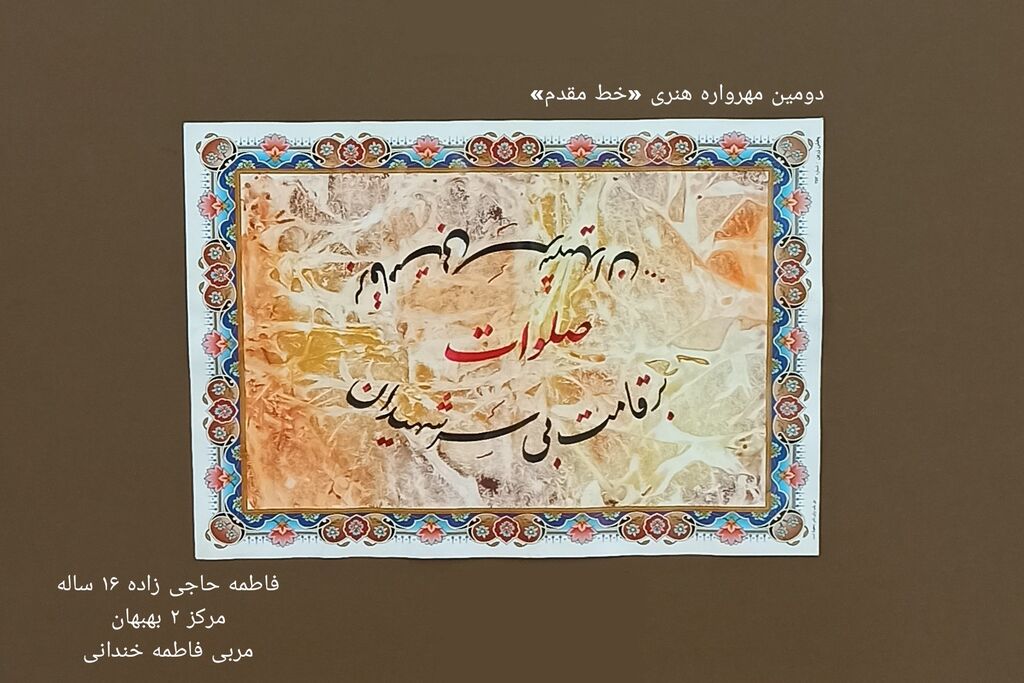 دومین مهرواره هنری «خط مقدم»
بر قامت بی سر شهیدان
صلوات
بر قامت بی سر شهیدان
فاطمه حاجی زاده ۱۶ ساله
مرکز ۲ بهبهان
مربی فاطمه خندانی